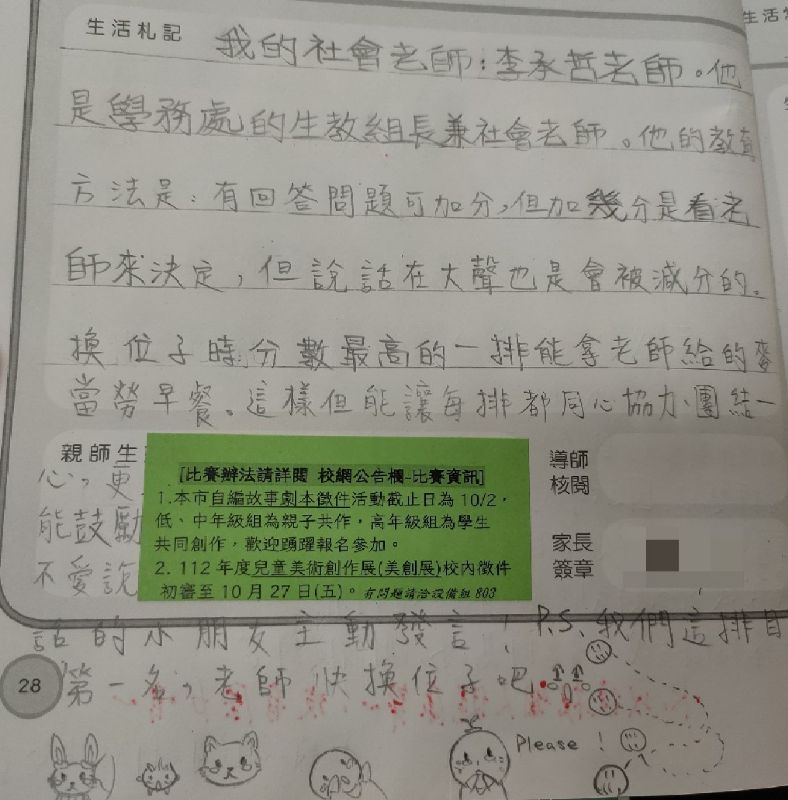 生活札記
我的社會老師:李承哲老師。他
是學務處的生教組長兼社會老師。他的教
方法是:有回答問題可加分,但加幾分是看老
師來決定,但說話在大聲也是會被減分的。
換位子時分數最高的一排能拿老師給的麥
當勞早餐。這樣但能讓每排都同心協力、團結一
心,更
能鼓勵
不愛說
話的小朋友主動發言!P.S.我們這排目
第一名,老師快換位子吧
Please!
親師生
[比賽辦法請詳閱 校網公告欄-比賽資訊]
1.本市自編故事劇本徵件活動截止日為 10/2,
低、中年級組為親子共作,高年級組為學生
共同創作,歡迎踴躍報名參加。
2. 112 年度兒童美術創作展(美創展)校內徵件
初審至 10 月 27 日(五)。有問題請洽設備組 803
導師
核閱
家長
簽章
28
生活